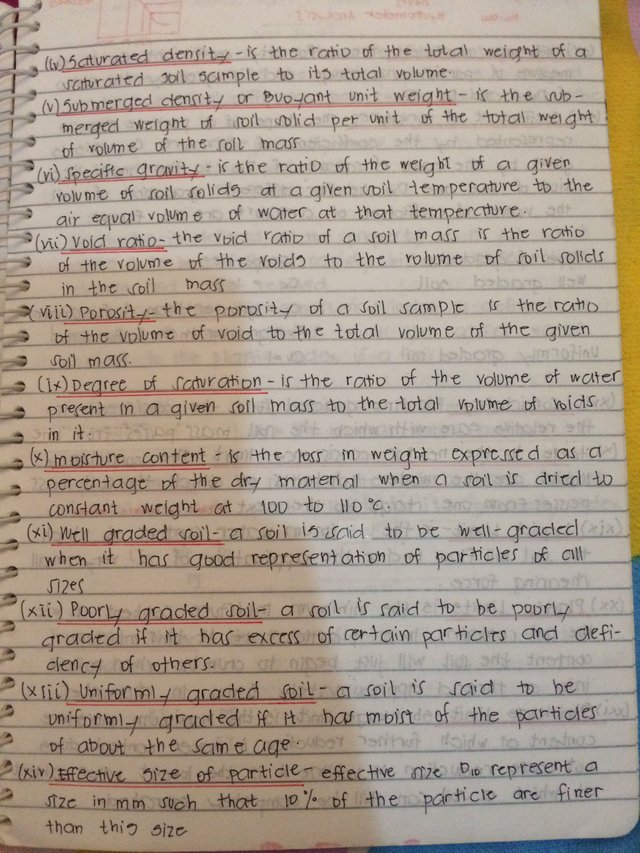 (iv) Saturated density - is the ratio of the total weight of a
saturated soil sample to its total volume.
(v) Submerged density or Buoyant unit weight - is the sub-
merged weight of soil solid per unit of the total weight
of volume of the soil mass
(vi) specific gravity - is the ratio of the weight of a given
volume of soil solids at a given soil temperature to the
air equal volume of water at that temperature.
(vii) Void ratio - the void ratio of a soil mass is the ratio
of the volume of the voids to the volume of soil solids
in the soil mass
(viii) Porosity - the porosity of a soil sample is the ratio
of the volume of void to the total volume of the given
soil mass.
(ix) Degree of saturation - is the ratio of the volume of water
present in a given soil mass to the total volume of voids
in it.
(x) moisture content - is the loss in weight expressed as a
percentage of the dry material when a soil is dried to
constant weight at 100 to 110°c.
(xi) Well graded soil - a soil is said to be well-graded
when it has good representation of particles of all
sizes
(xii) Poorly graded soil - a soil is said to be poorly
graded if it has excess of certain particles and defi-
ciency of others.
(xiii) Uniformly graded soil - a soil is said to be
uniformly graded if it has moist of the particles
of about the same age.
(xiv) Effective size of particle - effective size D10 represent a
size in mm such that 10% of the particle are finer
than this size